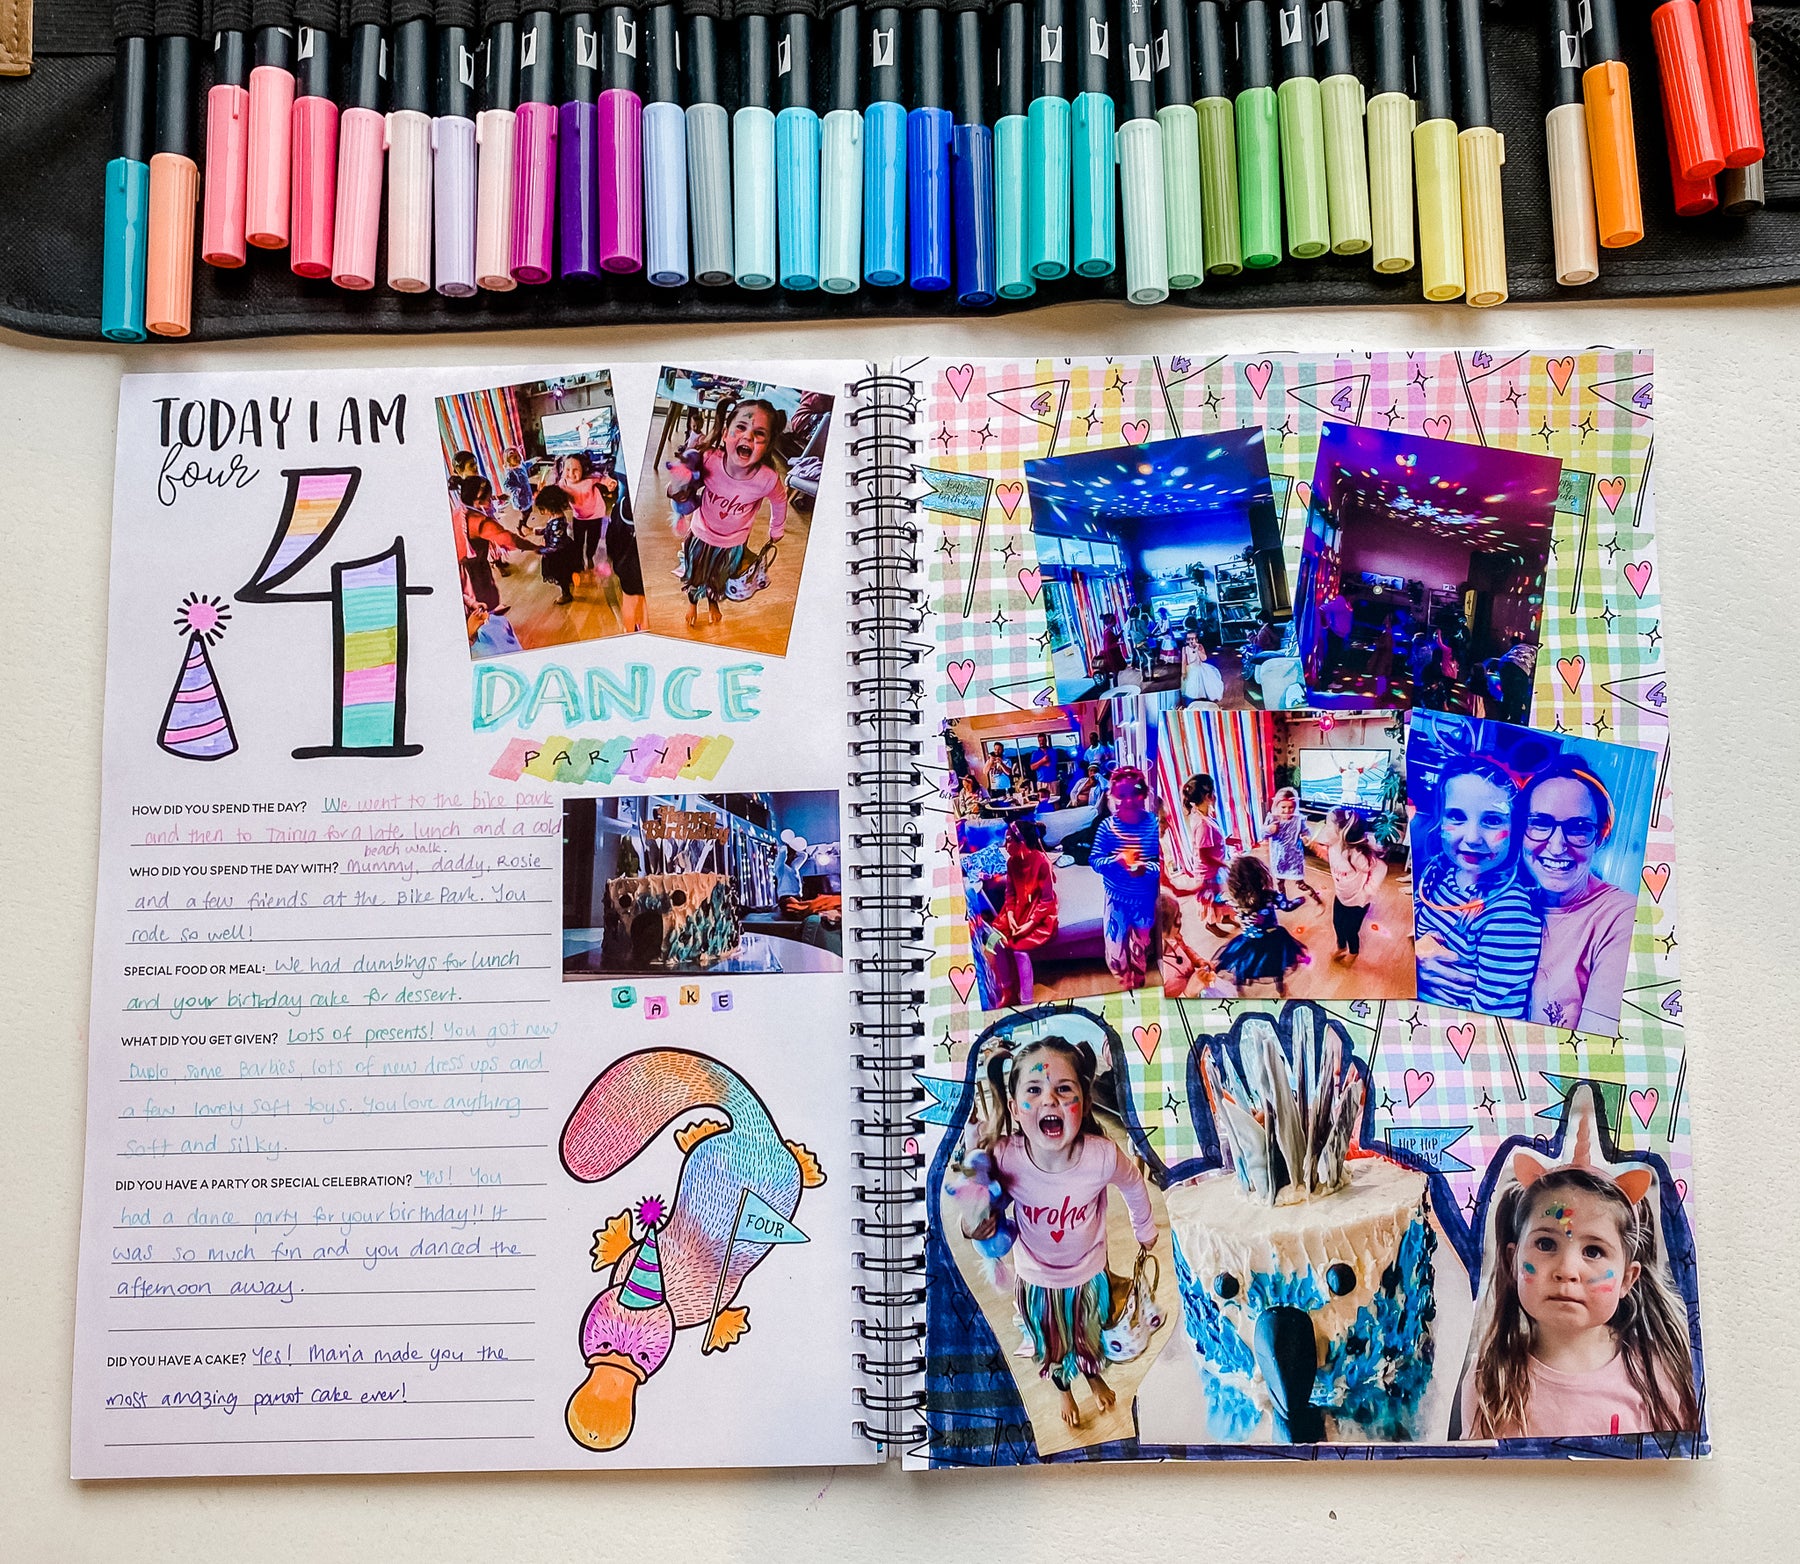 TODAY I AM
four
4
DANCE
PARTY!
HOW DID YOU SPEND THE DAY? We went to the bike park
and then to Tairua for a late lunch and a cold
beach walk.
WHO DID YOU SPEND THE DAY WITH? Mummy, daddy, Rosie
and a few friends at the Bike Park. You
rode so well!
SPECIAL FOOD OR MEAL: We had dumblings for lunch
and your birthday cake for dessert.
WHAT DID YOU GET GIVEN? Lots of presents! You got new
Duplo, some Barbies, lots of new dress ups and
a few lovely soft toys. You love anything
soft and silky.
DID YOU HAVE A PARTY OR SPECIAL CELEBRATION? Yes! You
had a dance party for your birthday!! It
was so much fun and you danced the
afternoon away.
DID YOU HAVE A CAKE? Yes! Maria made you the
most amazing parrot cake ever!
Happy
Birthday
CAKE
FOUR
aroha
4
4
4
4
happy
birthday
4
4
4
HIP HIP
HOORAY!
aroha